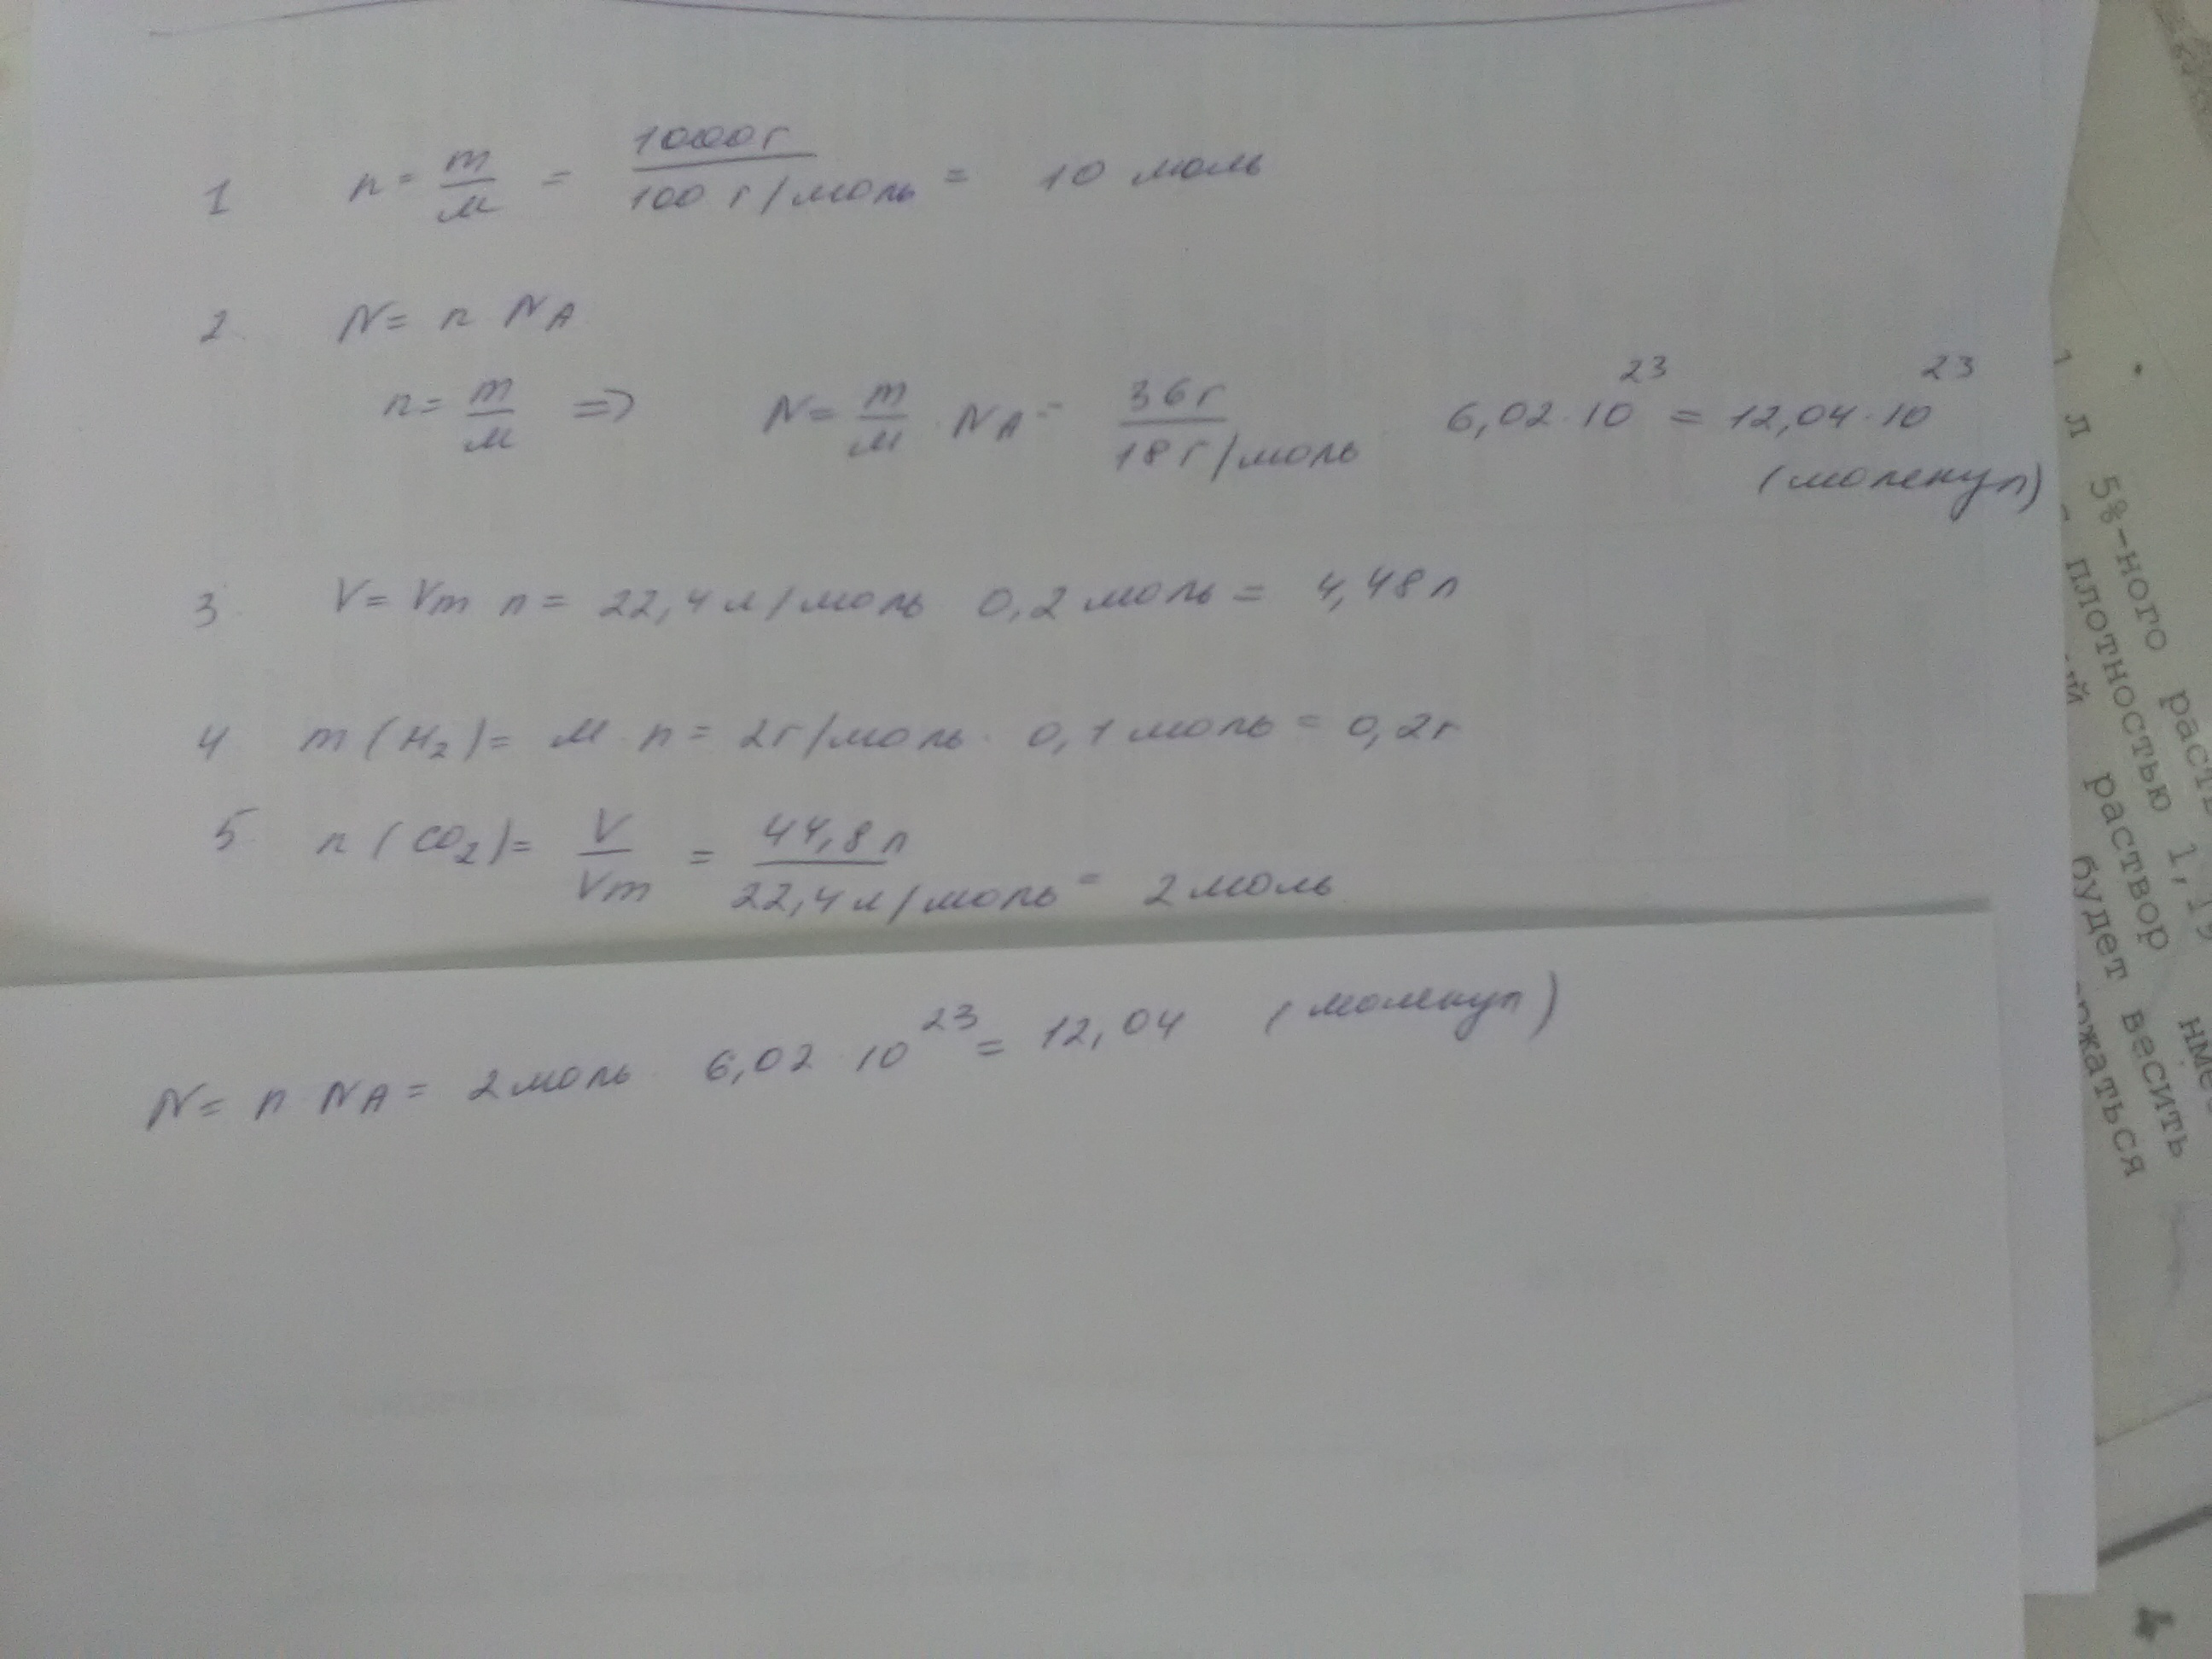 1 n = m/м = 1000г / 100 г/моль = 10 моль
2. N = n NA
n = m/м => N = m/м · NA = 36г / 18 г/моль · 6,02 · 10^23 = 12,04 · 10^23
(молекул)
3. V = Vm n = 22,4 л/моль 0,2 моль = 4,48 л
4 m (H2) = M · n = 2г/моль · 0,1 моль = 0,2г
5. n (CO2) = V/Vm = 44,8 л / 22,4 л/моль = 2 моль
N = n · NA = 2 моль · 6,02 · 10^23 = 12,04 (молекул)
л 5%-ного
плотностью 1,19
раствор
будет весить
4